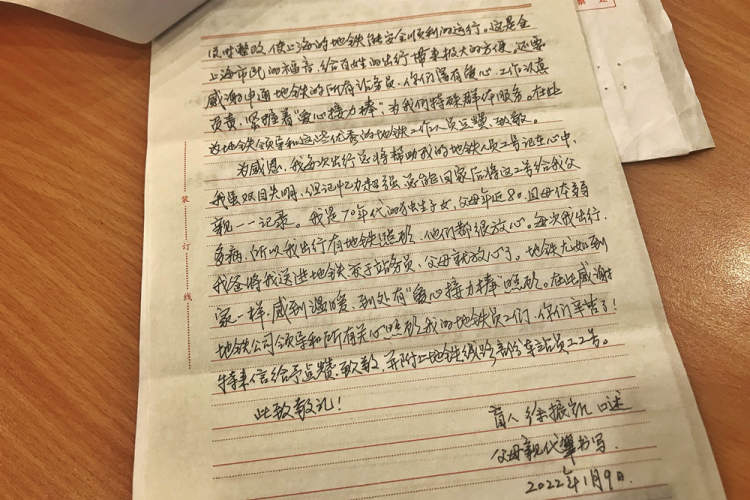 及时整改,使上海的地铁能安全顺利的运行。这是全
上海市民的福音,给百姓的出行带来极大的方便,还要
感谢申通地铁的所有站务员,你们富有爱心,工作认真
负责,紧握着“爱心接力棒”,为我们特殊群体服务。在此
为地铁领导和这些优秀的地铁工作人员点赞、致敬。
为感恩,我每次出行总将帮助我的地铁人员工号记在心中,
我虽双目失明,但记忆力超强,总能回家后将这工号给我父
亲一一记录。我是70年代的独生子女,父母年近80,且母体弱
多病,所以我出行有地铁照顾,他们都很放心。每次我出行,
我爸将我送进地铁交于站务员,父母就放心了。地铁尤如到
家一样,感到温暖,到处有“爱心接力棒”照顾。在此感谢
地铁公司领导和所有关心照顾我的地铁员工们,你们辛苦了!
特来信给予点赞、致敬,并附上地铁线路部份车站员工工号。
此致敬礼!
盲人 徐振凯 口述
父母亲代笔书写.
2022年1月9日.
装
订
线